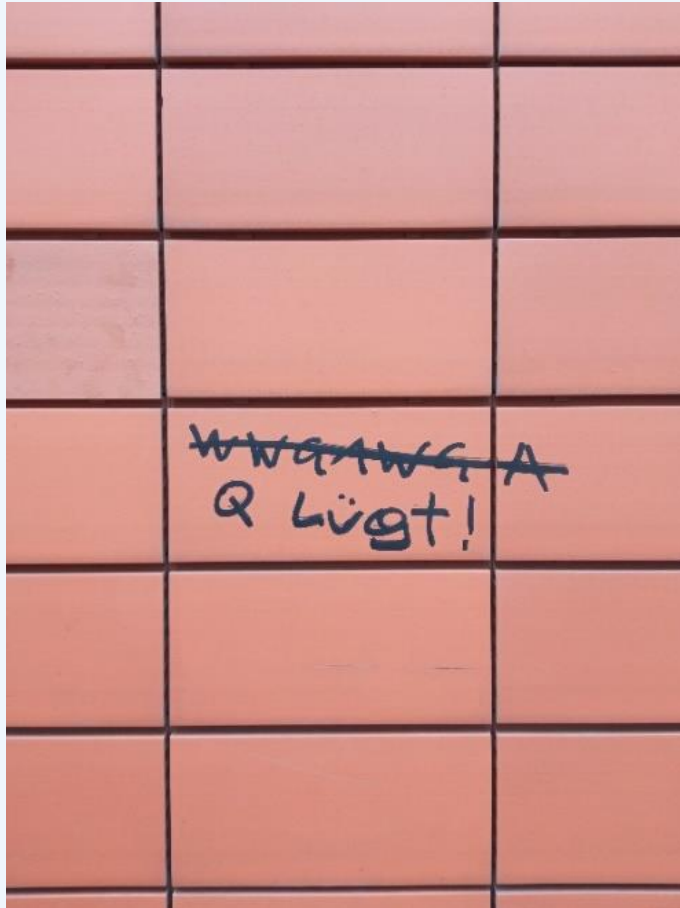 WWGAWGA
Q Lügt!